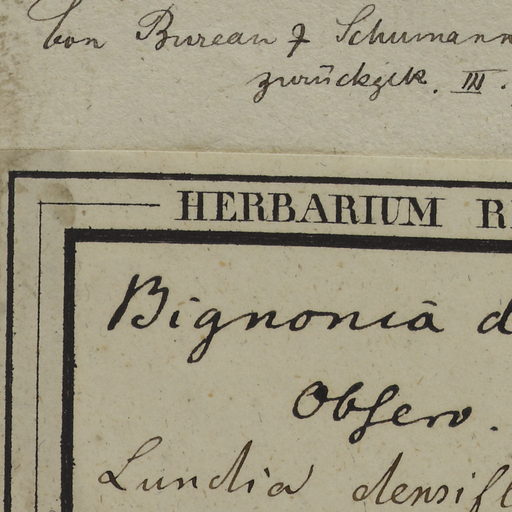 von Bureau & Schumann
zurückgek. III.
HERBARIUM R
Bignonia d
Observ.
Lundia densifl